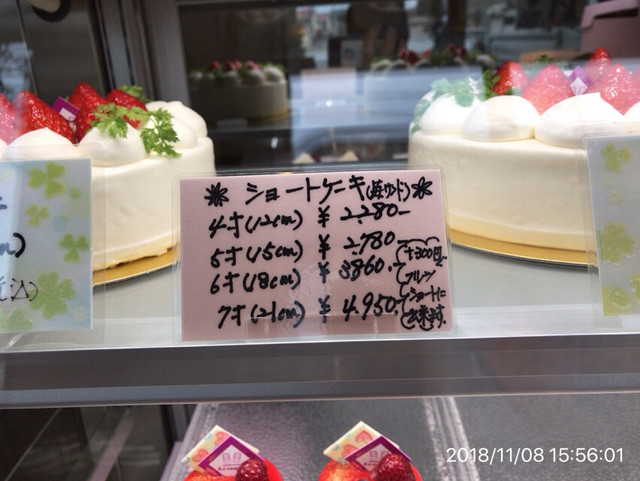 ショートケーキ(苺サンド)
4才(12cm) ¥ 2,280-
5才(15cm) ¥ 2,780
6才(18cm) ¥ 3860.
7才(21cm) ¥ 4,950.
+300円
フルーツ
ショートに
出来ます。
込)
2018/11/08 15:56:01